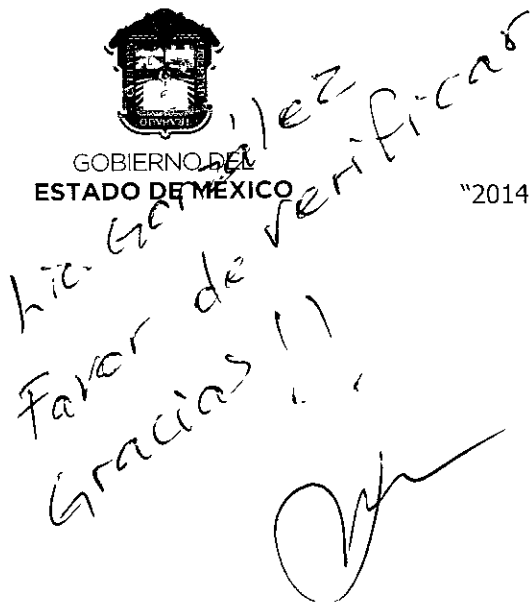 GOBIERNO DEL
ESTADO DE MÉXICO
"2014
Lic. González
Favor de verificar
Gracias!!